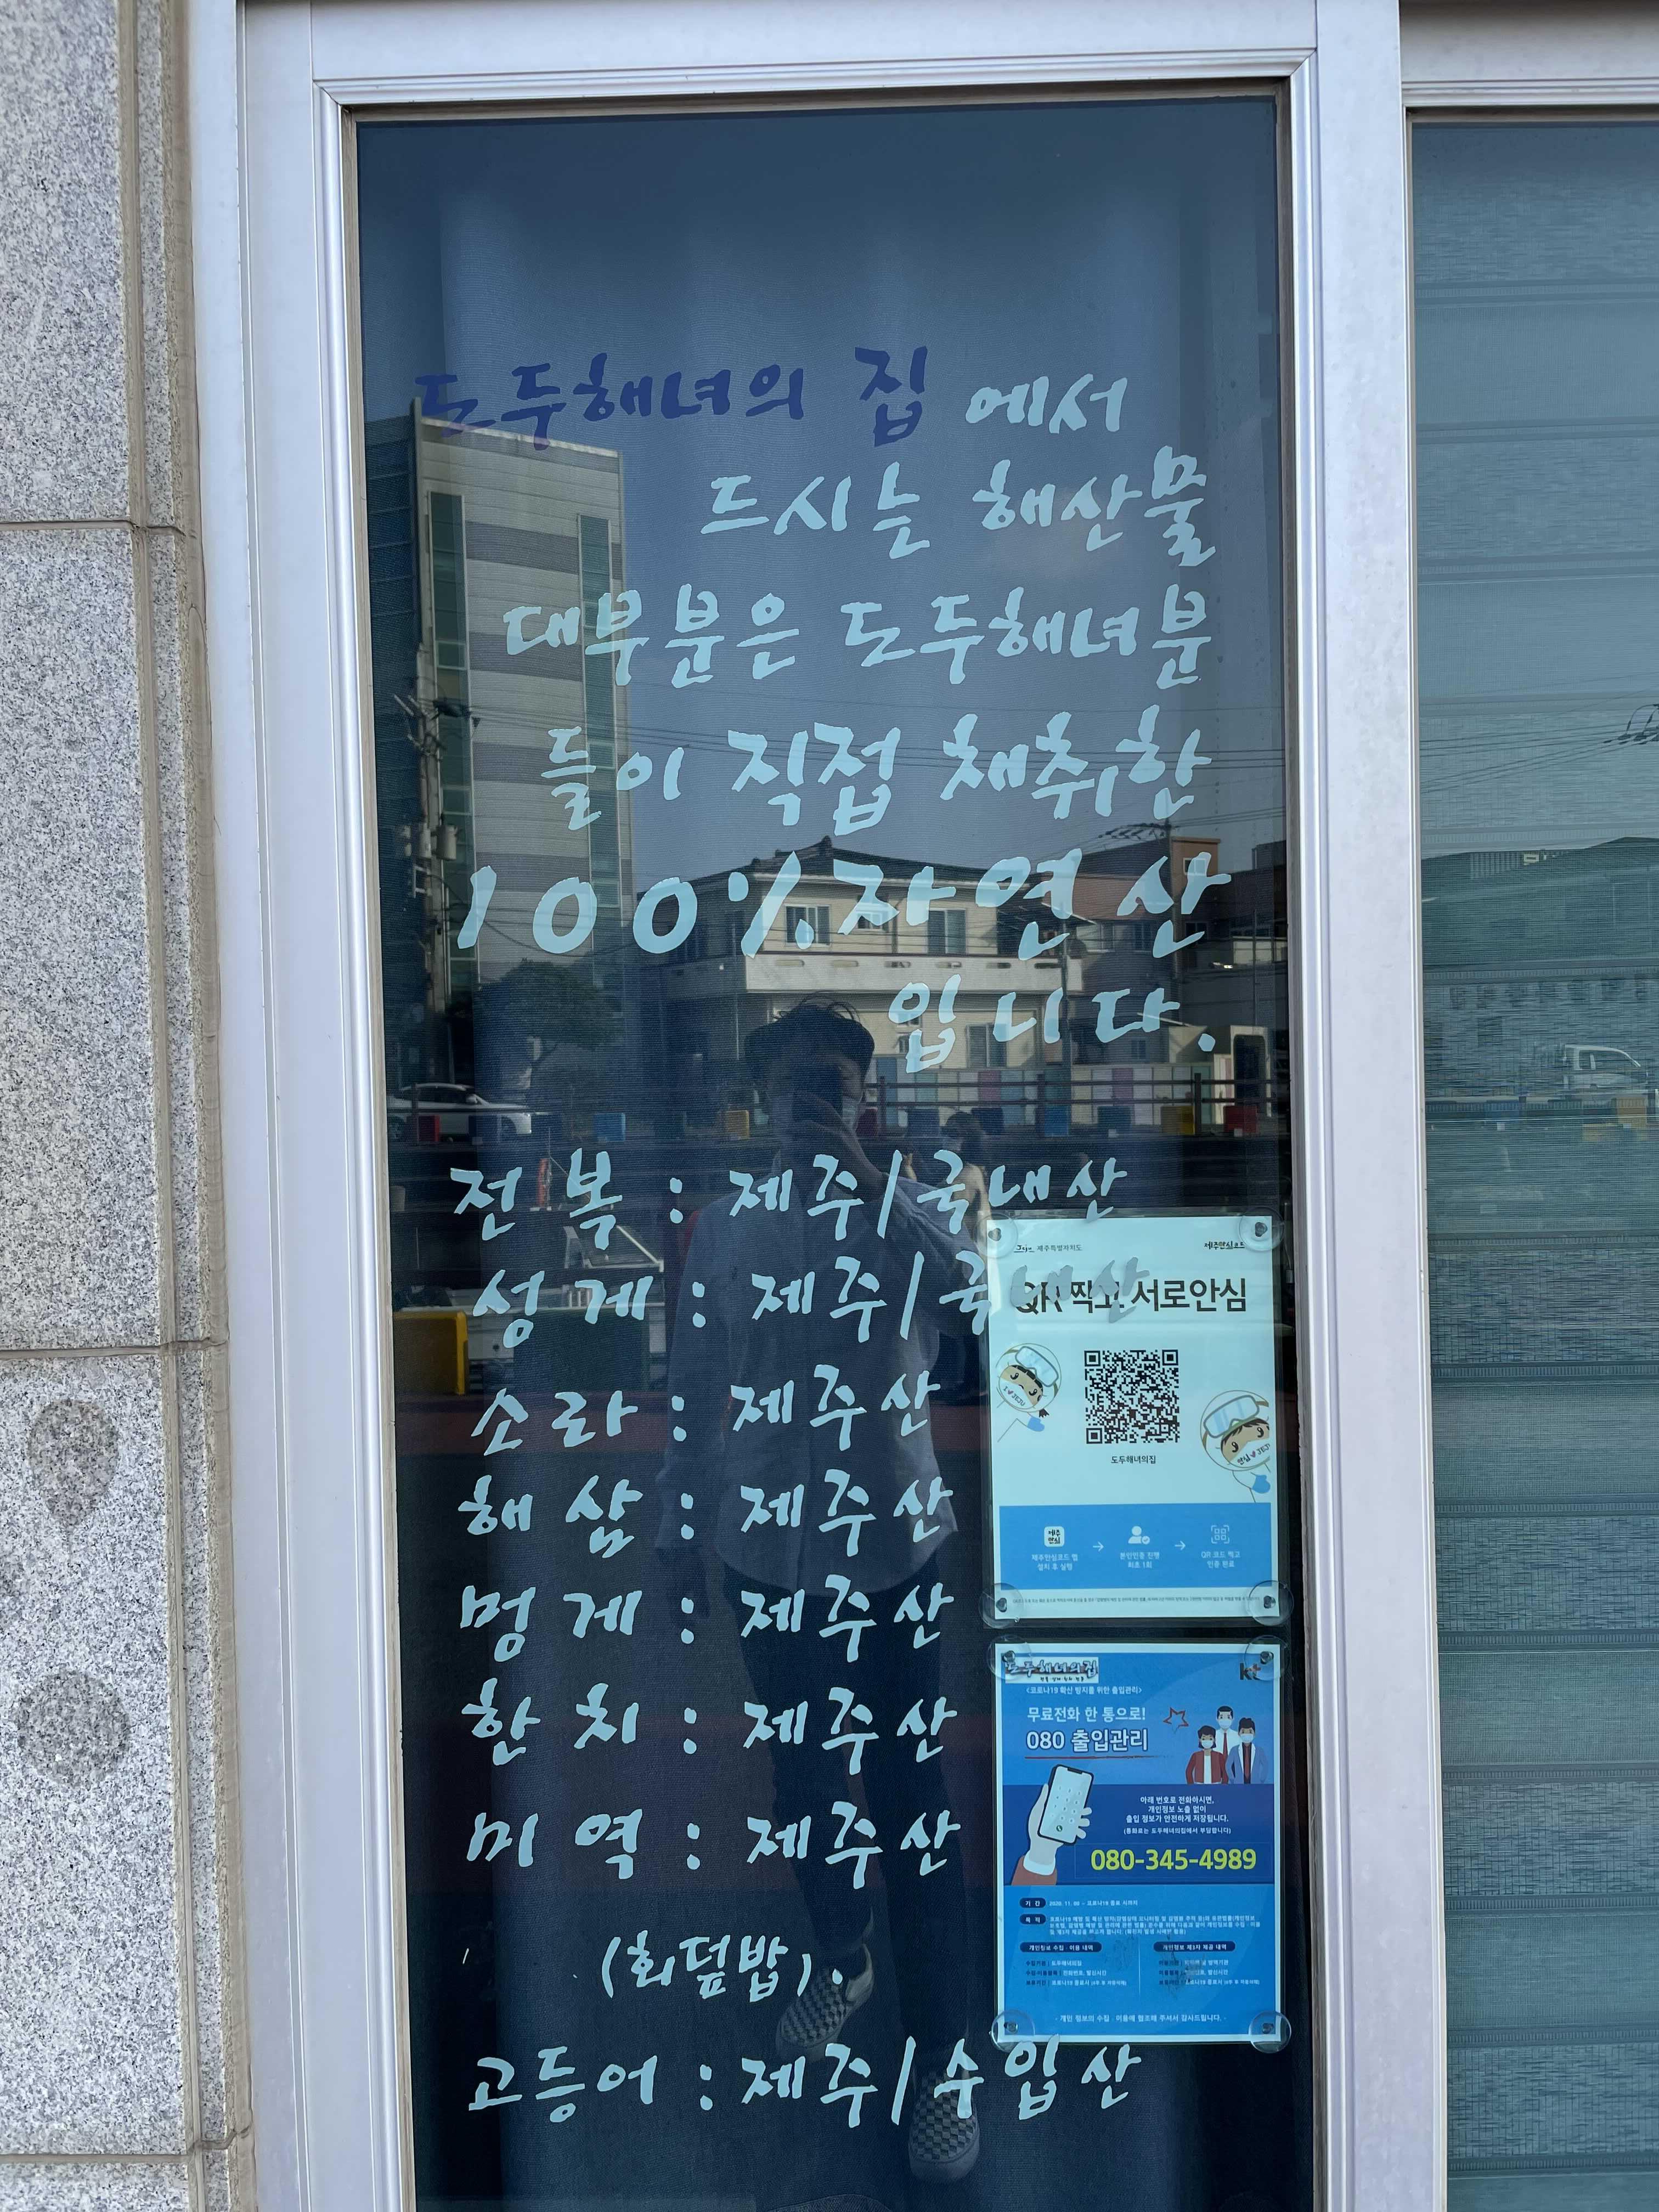 도두해녀의 집 에서
드시는 해산물
대부분은 도두해녀분
들이 직접 채취한
100% 자연산
입니다.
전복 : 제주/국내산
성게 : 제주/국내산
소라 : 제주산
해삼 : 제주산
멍게 : 제주산
한치 : 제주산
미역 : 제주산
(회덮밥).
고등어 : 제주/수입산
제주특별자치도 제주안심코드
QR 찍고! 서로안심
도두해녀의집
제주안심코드 앱
설치 후 실행
본인인증 진행
최초 1회
QR 코드 찍고
인증 완료
도두해녀의집
kt
<코로나19 확산 방지를 위한 출입관리>
무료전화 한 통으로!
080 출입관리
아래 번호로 전화하시면,
개인정보 노출 없이
출입 정보가 안전하게 저장됩니다.
(통화료는 도두해녀의집에서 부담합니다)
080-345-4989
기 간
목 적
개인정보 수집 · 이용 내역
개인정보 제3자 제공 내역
· 개인 정보의 수집 · 이용에 협조해 주셔서 감사드립니다. ·